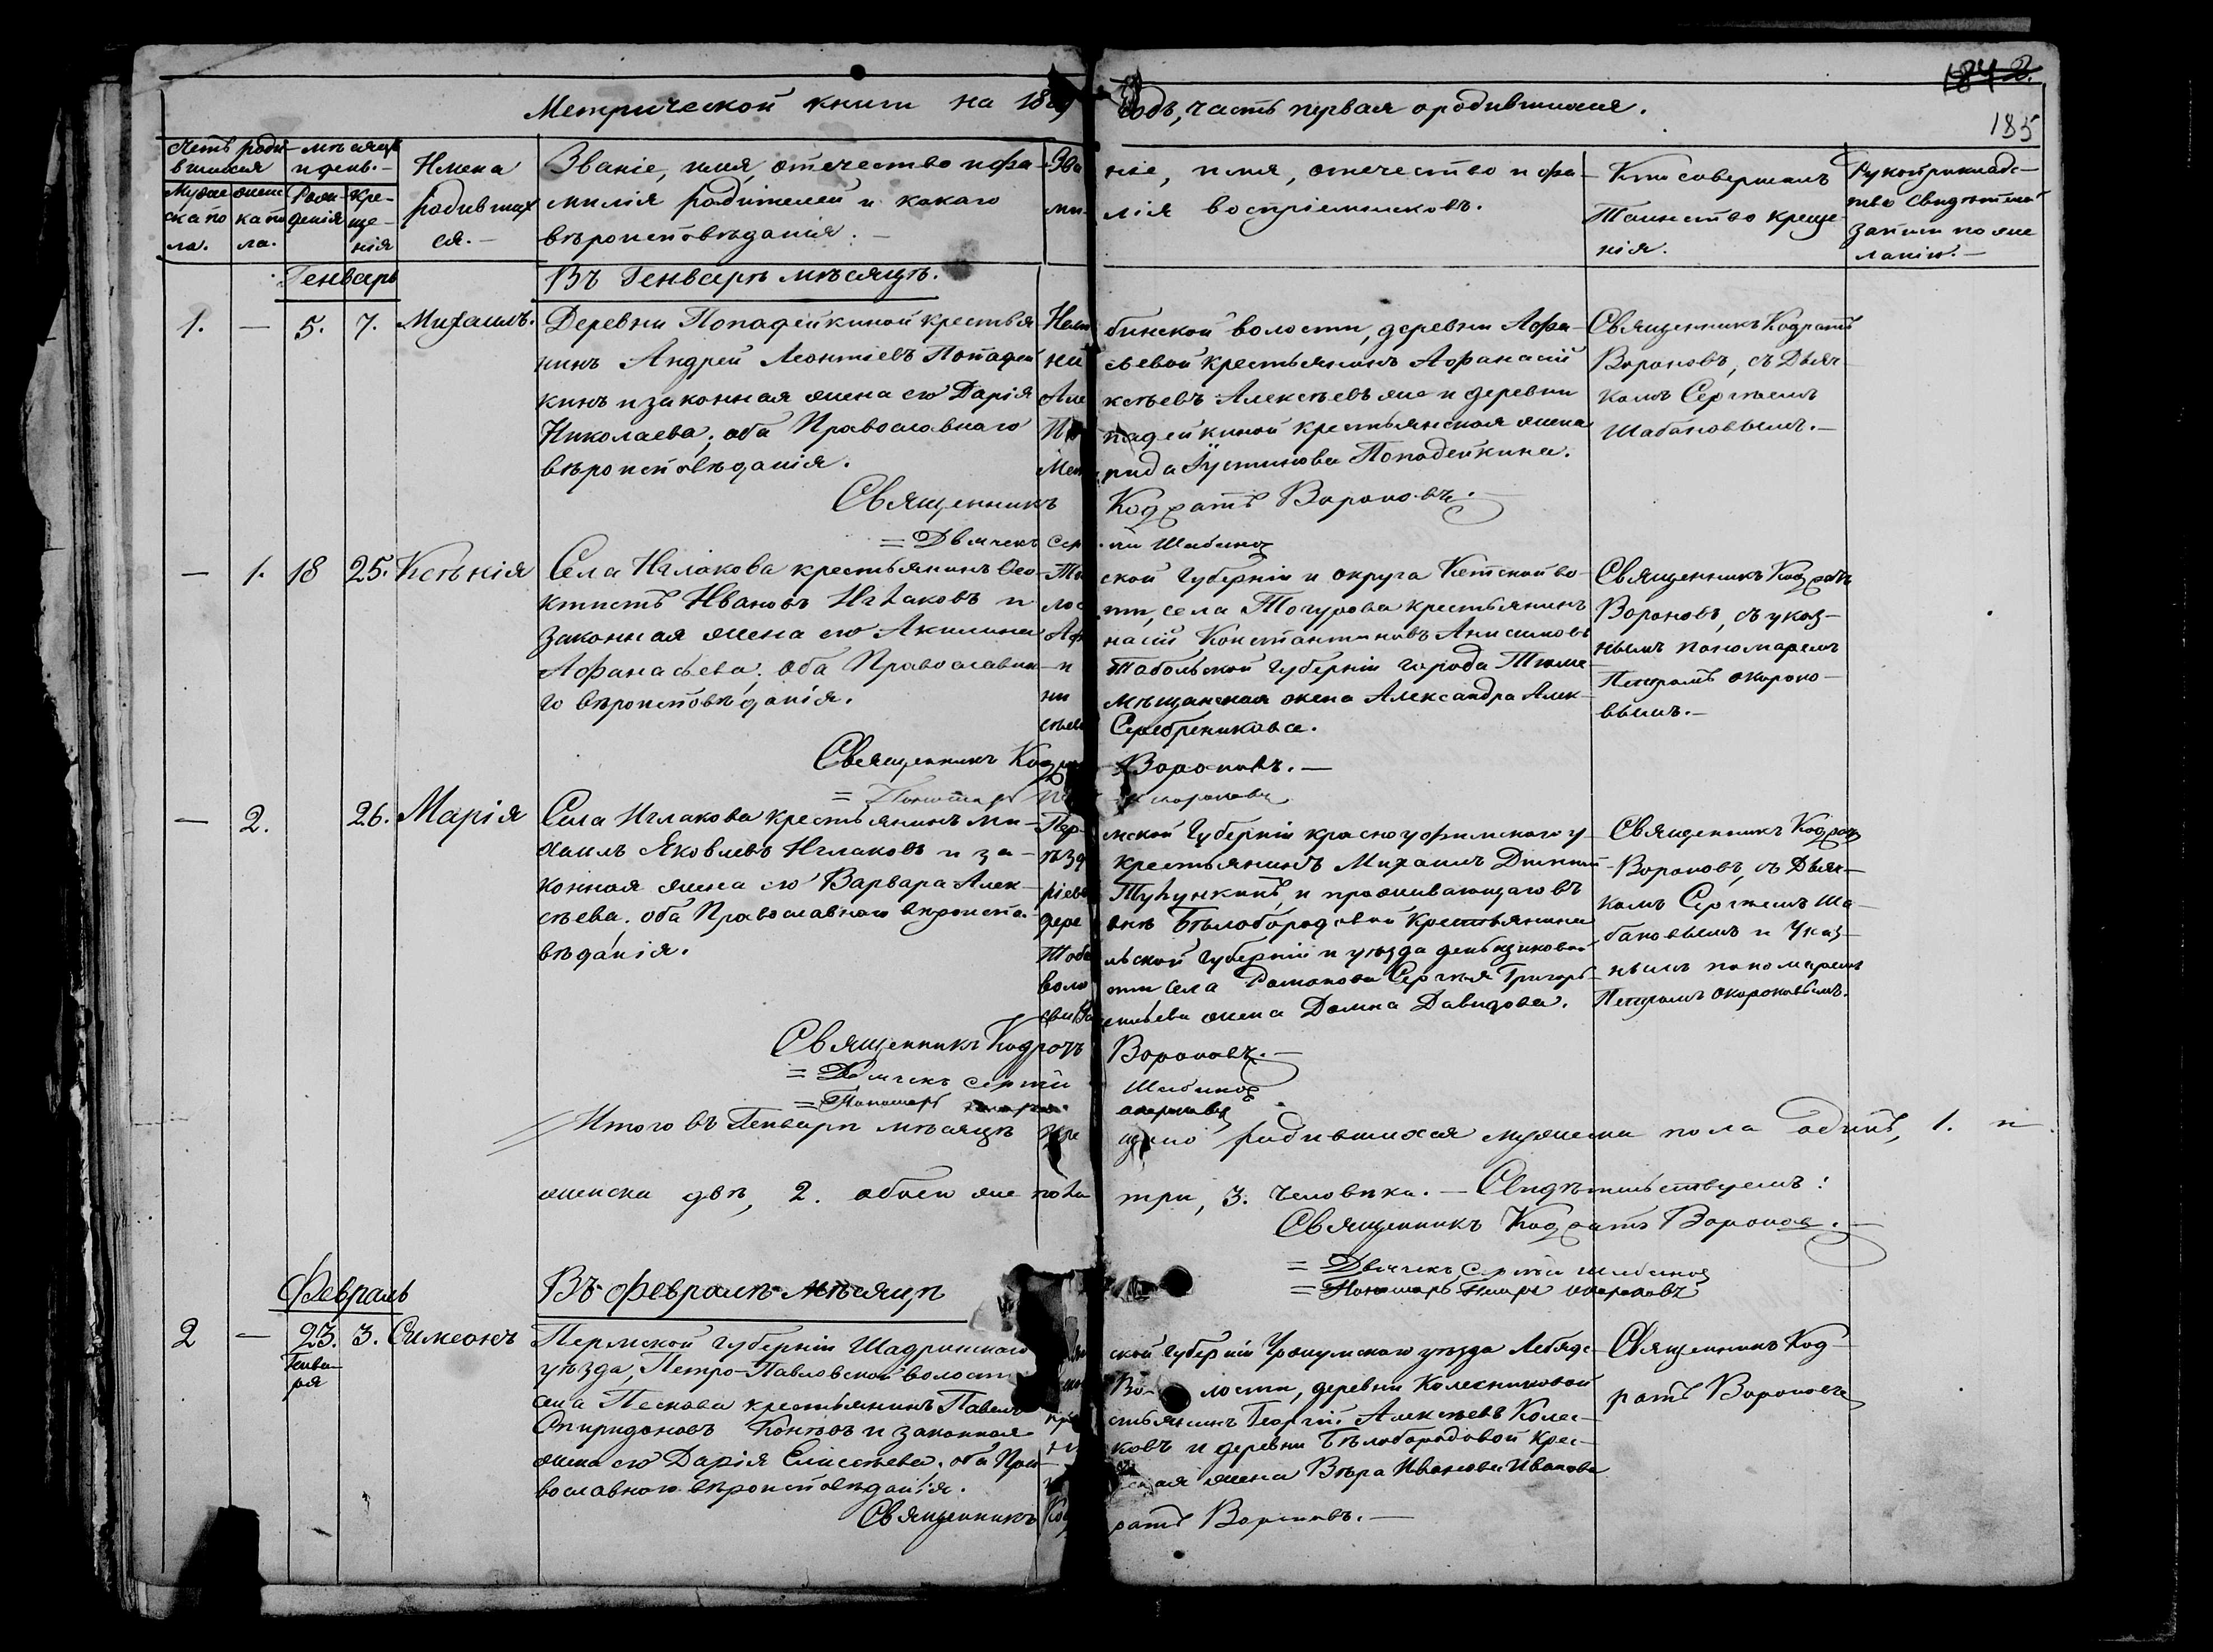 184 2.
185
Метрической книги на 18 годъ, часть первая о родившихся.
Счетъ родившихся
Мужеска пола.
женска пола.
мѣсяцъ и день.
Рождения
Крещенія
Имена родившихся.
Званіе, имя, отечество и фамилія родителей и какого вѣроисповѣданія.
Званіе, имя, отечество и фамилія воспріемниковъ.
Кто совершалъ Таинство крещенія.
Рукоприкладство свидѣтелей записи по желанію.
Генварь
Въ Генварѣ мѣсяцѣ.
1. — 5. 7. Михаилъ.
Деревни Попадейкиной крестья
нинъ Андрей Леонтіевъ Попадей
кинъ и законная жена его Дарія
Николаева; оба Православнаго
вѣроисповѣданія.
бинской волости, деревни Афа-
сьевой крестьянинъ Афанасій
Алексѣевъ Алексѣевъ же и деревни
Попадейкиной крестьянская жена
Устинова Попадейкина.
Священникъ Кодратъ
Вороновъ, съ Дьяч-
комъ Сергіемъ
Шабановымъ.—
Священникъ Кодратъ Вороновъ.
= Дьячекъ Сергій Шабановъ
— 1. 18 25. Ксѣнія
Села Иглакова крестьянинъ Ѳео-
ктистъ Ивановъ Иглаковъ и
законная жена его Акилина
Афанасьева; оба Православна-
го вѣроисповѣданія.
Томской Губерніи и округа Кетской во-
лости, села Тогурова крестьянинъ
Афанасій Константиновъ Анисимовъ
и Тобольской Губерніи города Тюме-
ни Мѣщанская жена Александра Алек-
сѣева Серебреникова.
Священникъ Кодратъ
Вороновъ, съ указ-
нымъ пономаремъ
Петромъ Окороко-
вымъ.—
Священникъ Кодратъ Вороновъ.—
= Пономарь Петръ Окороковъ
— 2. 26. Марія
Села Иглакова крестьянинъ Ми-
хаилъ Яковлевъ Иглаковъ и за-
конная жена его Варвара Алек-
сѣева; оба Православнаго вѣроиспо-
вѣданія.
Пермской Губерніи красноуфимскаго у-
ѣзда крестьянинъ Михаилъ Дмит-
ріевъ и проживающаго въ
деревнѣ Бѣлобородовой крестьянина
Тобольской Губерніи и уѣзда
волости села Романова Сергѣя Григорь-
жена Домна Давидова.
Священникъ Кодратъ
Вороновъ, съ Дьяч-
комъ Сергіемъ Ша-
бановымъ и Указ-
нымъ пономаремъ
Петромъ Окороковымъ.
Священникъ Кодратъ Вороновъ.—
= Дьячекъ Сергій Шабановъ
= Пономарь Окороковъ
Итого въ Генварѣ мѣсяцѣ родившихся мужеска пола одинъ, 1. и
женска двѣ, 2. обоего же пола три, 3. человѣка.— Свидѣтельствуемъ:
Священникъ Кодратъ Вороновъ.—
= Дьячекъ Сергій Шабановъ
= Пономарь Петръ Окороковъ
Февраль
Въ Февралѣ мѣсяцѣ
2 — 23. Генваря 3. Симеонъ
Пермской Губерніи Шадринскаго
уѣзда, Петро-Павловской волости
села Пескова крестьянинъ Павелъ
Спиридоновъ и законная
жена его Дарія Елисѣева; оба Пра-
вославнаго вѣроисповѣданія.
ской Губерніи Уржумскаго уѣзда Лебяж-
волости, деревни Колесниковой
крестьянинъ Георгій Алексѣевъ Колес-
никовъ и деревни Бѣлобородовой крес-
жена Вѣра Иванова Иванова
Священникъ Код-
ратъ Вороновъ
Священникъ Кодратъ Вороновъ.—